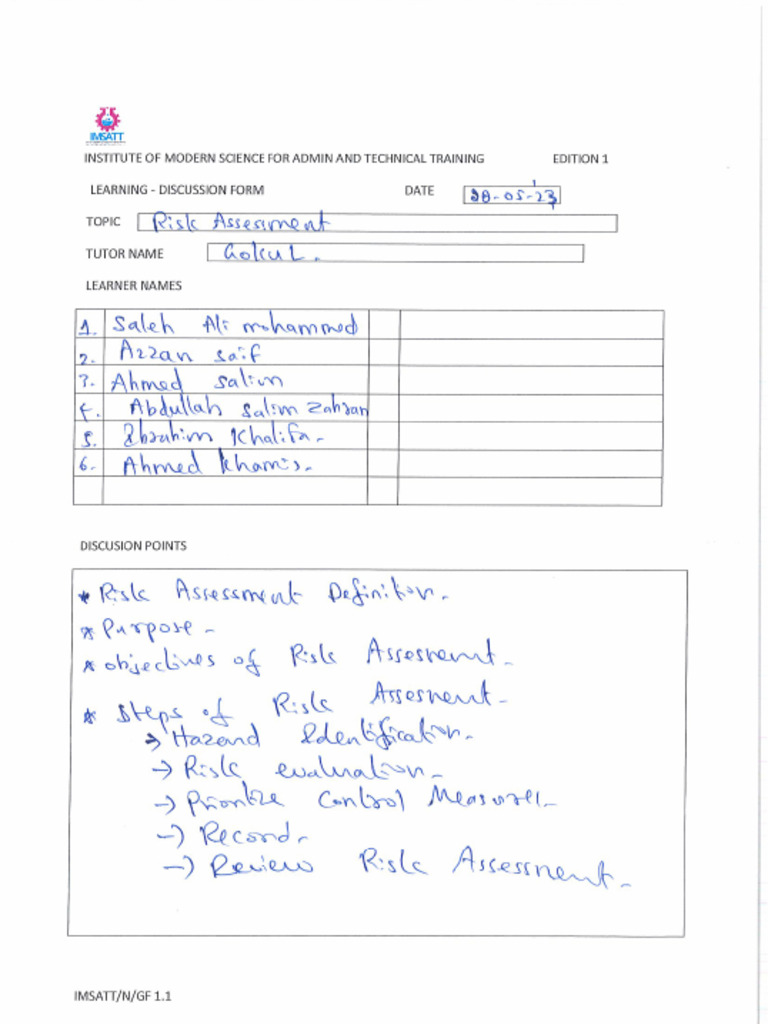 IMSATT
INSTITUTE OF MODERN SCIENCE FOR ADMIN AND TECHNICAL TRAINING EDITION 1
LEARNING - DISCUSSION FORM DATE 28-05-23
TOPIC Risk Assessment
TUTOR NAME Gokul.
LEARNER NAMES
1. Saleh Ali mohammed
2. Azzan saif
3. Ahmed salim
4. Abdullah Salim Zahran
5. Ibrahim Khalifa.
6. Ahmed khamis.
DISCUSION POINTS
* Risk Assessment Definition.
* Purpose.
* objectives of Risk Assesment.
* Steps of Risk Assesment.
→ Hazard Identification.
→ Risk evaluation.
→ Prioritize Control Measures.
→ Record.
→ Review Risk Assessment.
IMSATT/N/GF 1.1